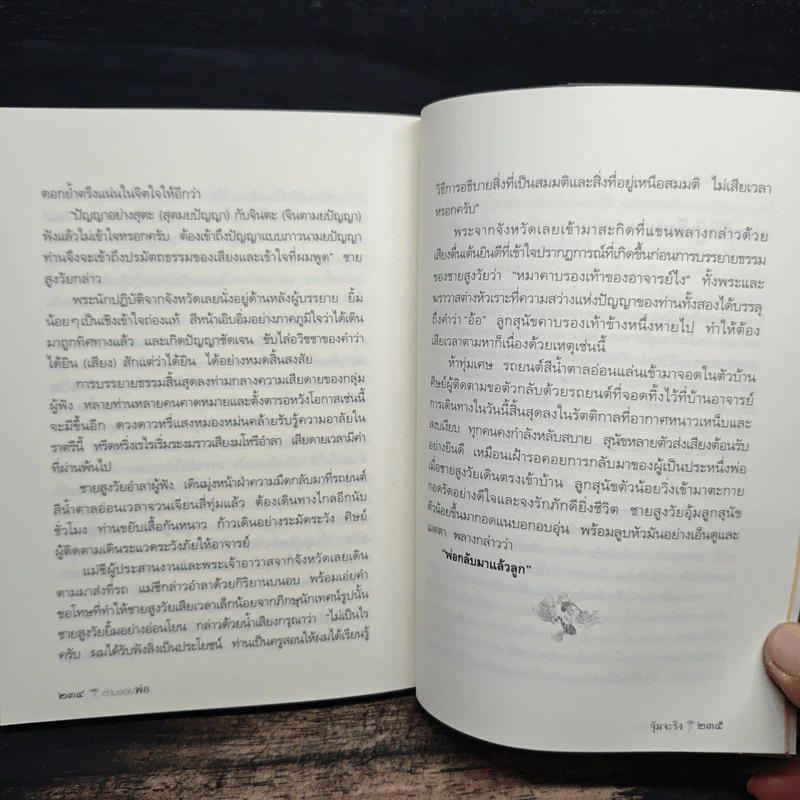 ตอกย้ำตรึงแน่นในจิตใจให้อีกว่า
"ปัญญาอย่างสุตะ (สุตมยปัญญา) กับจินตะ (จินตามยปัญญา)
ฟังแล้วไม่เข้าใจหรอกครับ ต้องเข้าถึงปัญญาแบบภาวนามยปัญญา
ท่านจึงจะเข้าถึงปรมัตถธรรมของเสียงและเข้าใจที่ผมพูด" ชาย
สูงวัยกล่าว
พระนักปฏิบัติจากจังหวัดเลยนั่งอยู่ด้านหลังผู้บรรยาย ยิ้ม
น้อยๆเป็นเชิงเข้าใจถ่องแท้ สีหน้าเอิบอิ่มอย่างภาคภูมิใจว่าได้เดิน
มาถูกทิศทางแล้ว และเกิดปัญญาชัดเจน ขับไล่อวิชชาของคำว่า
ได้ยิน (เสียง) สักแต่ว่าได้ยิน ได้อย่างหมดสิ้นสงสัย
การบรรยายธรรมสิ้นสุดลงท่ามกลางความเสียดายของกลุ่ม
ผู้ฟัง หลายท่านหลายคนคาดหมายและตั้งตารอหวังโอกาสเช่นนี้
จะมีขึ้นอีก ดวงดาวหรี่แสงหมองหม่นคล้ายรับรู้ความอาลัยใน
ราตรีนี้ หรีดหริ่งเรไรเริ่มระงมราวเสียงมโหรีอำลา เสียดายเวลามีค่า
ที่ผ่านพ้นไป
ชายสูงวัยอำลาผู้ฟัง เดินมุ่งหน้าฝ่าความมืดกลับมาที่รถยนต์
สีน้ำตาลอ่อนเวลาจวนเจียนสี่ทุ่มแล้ว ต้องเดินทางไกลอีกนับ
ชั่วโมง ท่านขยับเสื้อกันหนาว ก้าวเดินอย่างระมัดระวัง ศิษย์
ผู้ติดตามเดินระแวดระวังภัยให้อาจารย์
แม่ชีผู้ประสานงานและพระเจ้าอาวาสจากจังหวัดเลยเดิน
ตามมาส่งที่รถ แม่ชีกล่าวอำลาด้วยกิริยานบนอบ พร้อมเอ่ยคำ
ขอโทษที่ทำให้ชายสูงวัยเสียเวลาเล็กน้อยจากภิกษุนักเทศน์รูปนั้น
ชายสูงวัยยิ้มอย่างอ่อนโยน กล่าวด้วยน้ำเสียงกรุณาว่า "ไม่เป็นไร
ครับ ผมได้รับฟังสิ่งเป็นประโยชน์ ท่านเป็นครูสอนให้ผมได้เรียนรู้
๒๓๔ ตามรอยพ่อ
วิธีการอธิบายสิ่งที่เป็นสมมติและสิ่งที่อยู่เหนือสมมติ ไม่เสียเวลา
หรอกครับ"
พระจากจังหวัดเลยเข้ามาสะกิดที่แขนพลางกล่าวด้วย
เสียงตื่นเต้นยินดีที่เข้าใจปรากฏการณ์ที่เกิดขึ้นก่อนการบรรยายธรรม
ของชายสูงวัยว่า "หมาคาบรองเท้าของอาจารย์ไง" ทั้งพระและ
ฆราวาสต่างหัวเราะที่ความสว่างแห่งปัญญาของท่านทั้งสองได้บรรลุ
ถึงคำว่า "อ้อ" ลูกสุนัขคาบรองเท้าข้างหนึ่งหายไป ทำให้ต้อง
เสียเวลาตามหาก็เนื่องด้วยเหตุเช่นนี้
ห้าทุ่มเศษ รถยนต์สีน้ำตาลอ่อนแล่นเข้ามาจอดในตัวบ้าน
ศิษย์ผู้ติดตามขอตัวกลับด้วยรถยนต์ที่จอดทิ้งไว้ที่บ้านอาจารย์
การเดินทางในวันนี้สิ้นสุดลงในรัตติกาลที่อากาศหนาวเหน็บและ
สงบเงียบ ทุกคนคงกำลังหลับสบาย สุนัขหลายตัวส่งเสียงต้อนรับ
อย่างยินดี เหมือนเฝ้ารอคอยการกลับมาของผู้เป็นประหนึ่งพ่อ
เมื่อชายสูงวัยเดินตรงเข้าบ้าน ลูกสุนัขตัวน้อยวิ่งเข้ามาตะกาย
กอดรัดอย่างดีใจและจงรักภักดียิ่งชีวิต ชายสูงวัยอุ้มลูกสุนัข
ตัวน้อยขึ้นมากอดแนบอกอบอุ่น พร้อมลูบหัวมันอย่างเอ็นดูและ
เมตตา พลางกล่าวว่า
"พ่อกลับมาแล้วลูก"
จุ้มจะริง ๒๓๕